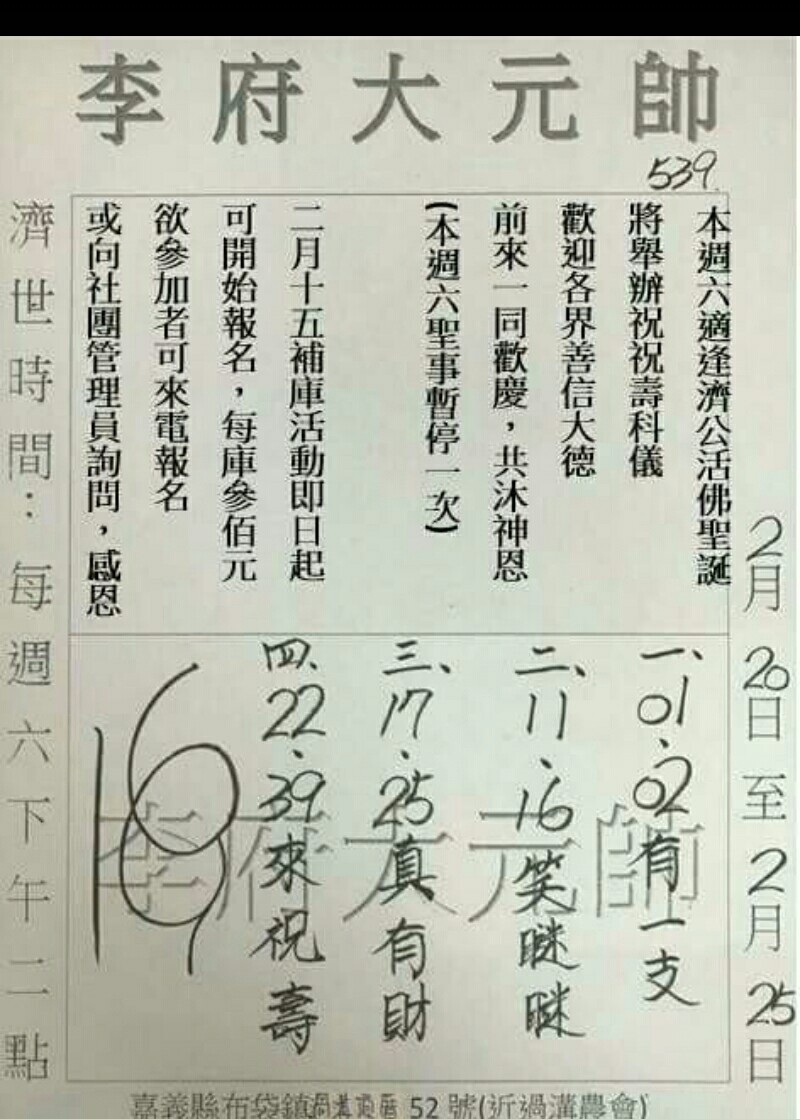 李府大元帥
539.
本週六適逢濟公活佛聖誕
將舉辦祝祝壽科儀
歡迎各界善信大德
前來一同歡慶，共沐神恩
(本週六聖事暫停一次)
二月十五補庫活動即日起
可開始報名，每庫參佰元
欲參加者可來電報名
或向社團管理員詢問，感恩
2月20日至2月25日
一、01、02有一支
二、11、16笑瞇瞇
三、17、25真有財
四、22、39來祝壽
李府大元帥
濟世時間：每週六下午二點
嘉義縣布袋鎮 52號(近過溝農會)